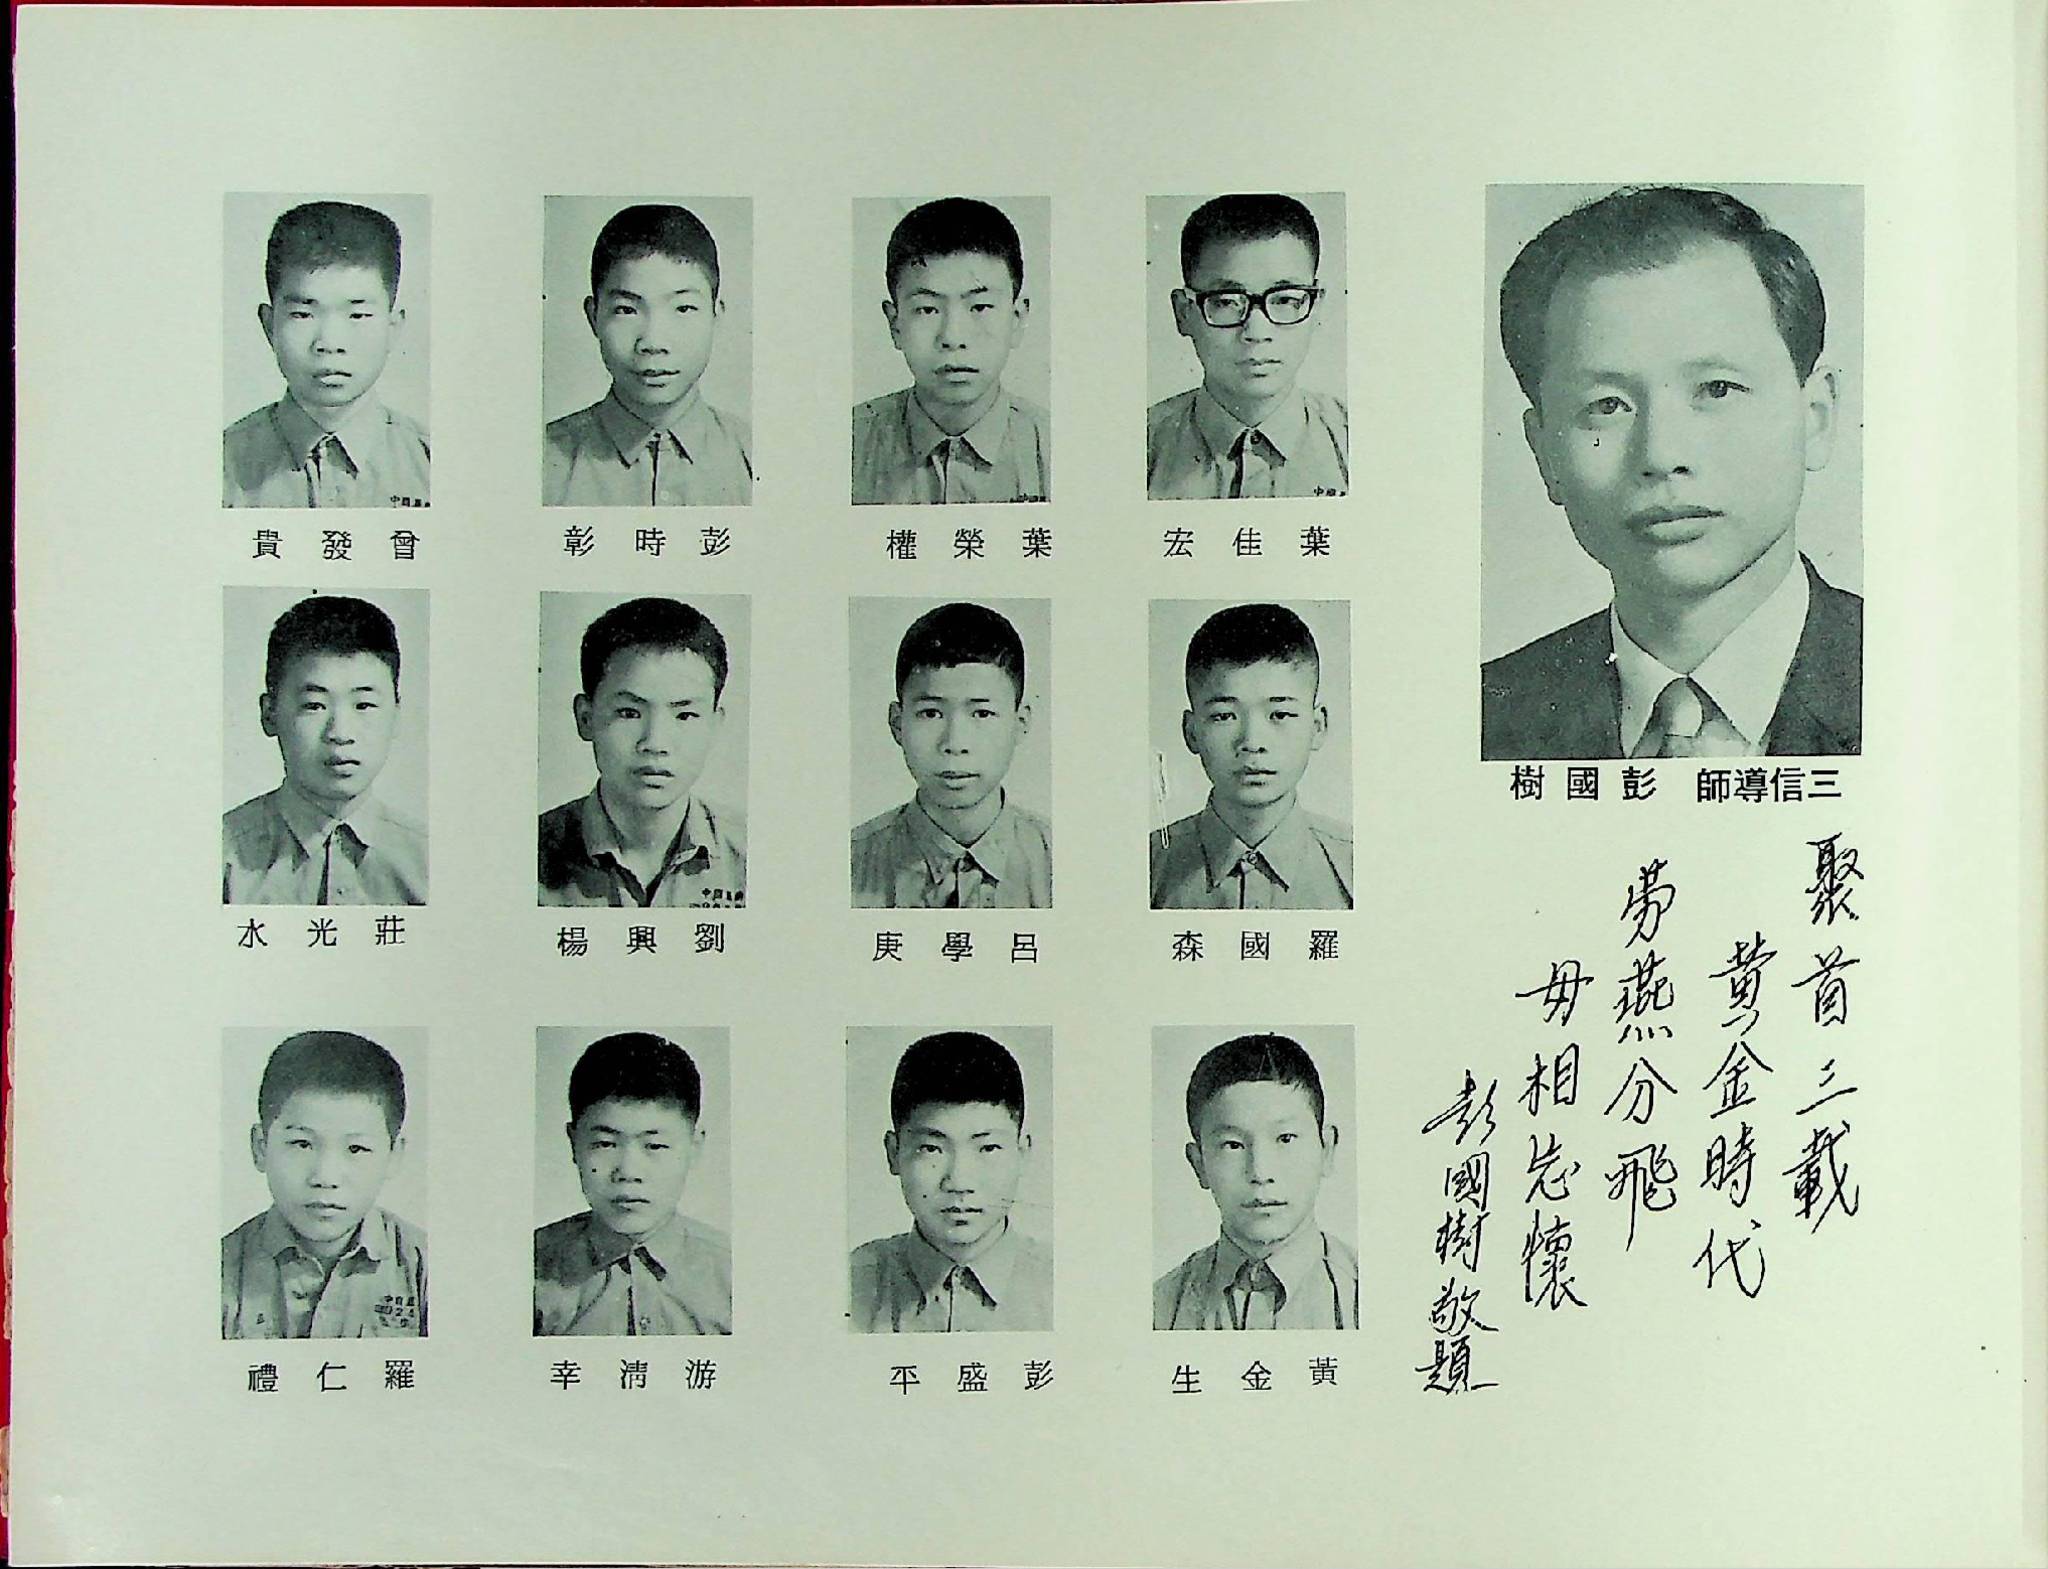 三信導師 彭國樹
聚首三載
黃金時代
勞燕分飛
毋相忘懷
彭國樹敬題
葉佳宏
葉榮權
彭時彰
曾發貴
羅國森
呂學庚
劉興楊
莊光水
黃金生
彭盛平
游清幸
羅仁禮